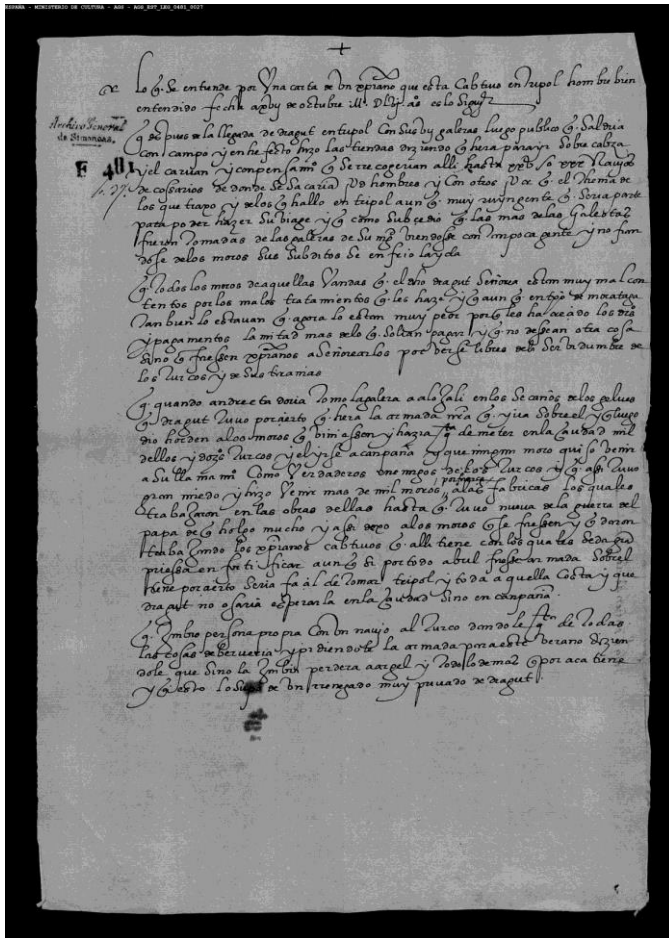 ESPAÑA - MINISTERIO DE CULTURA - AGS - AGS_EST_LEG_0481_0027
+
lo q. se entiende por Una carta de Un xpiano que esta Cabtivo en tripol hombre bien
entendido fecha a xvj de octubre
Archivo General
de Simancas
E 481
q despues de la llegada de dragut en tripol con sus galeras luego publico q. saldria
con campo y en hefecto hizo las tiendas diziendo q hera para yr sobre
y el caruan y q se recogerian alli hasta navios
de cosarios de donde se sacaria hombres y con otros q. el thenia de
los que traxo y de los q hallo en tripol aun q. muy ruyn gente q. seria parte
para poder hazer su viage y q como subçedio q. las mas de las galeotas
fueron tomadas de las galeras de su mg viendose con tan poca gente y no fian
dose de los moros sus subditos se enfrio la yda
q. todos los moros de aquellas vandas q. el dho dragut señorea estan muy mal con
tentos por los malos tratamientos q. les haze y q aun q. en tpo de morataga
tan bien lo estavan q. agora lo estan muy peor porq les ha
y pagamentos la mitad mas de lo q. solian pagar y q no dessean otra cosa
sino q fuessen xpianos a señorearlos por verse libres de la servidumbre de
los turcos y de sus tiranias
q. quando andrea doria tomo la galera en los secaños de los gelves
q. dragut tuvo por çierto q hera la armada q. yva sobre el y q luego
dio horden a los moros q viniessen y de meter en la çiudad mil
dellos y turcos y el yrse a canpaña y que ningun moro quiso venir
a su llamamio como verdaderos enemigos de los turcos y q assi tuvo
gran miedo y hizo venir mas de mil moros por fuerça a las fabricas los quales
trabaxaron en las obras dellas hasta q. tuvo nueva de la guerra del
papa de q holgo mucho y assi dexo a los moros q se fuessen y quedaron
trabaxando los xpianos cabtivos q. alli tiene con los quales se da gran
priessa en fortificar aun q si por todo abril fuesse armada sobrel
tiene por çierto seria façil de tomar tripol y toda aquella costa y que
dragut no osaria esperarla en la çiudad sino en canpaña
q. Embio persona propia con un navio al turco dandole de todas
las cosas de berveria y pidiendole la armada para este verano dizien
dole que sino la Embia perdera a argel y todo lo demas q por aca tiene
y q esto lo supo de un rrenegado muy privado de dragut